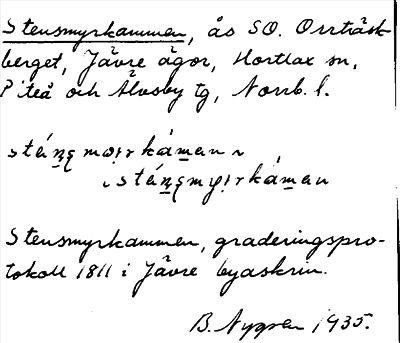 Stensmyrkammen, ås SO. Orrträsk-
berget, Jävre ägor, Hortlax sn,
Piteå och Älvsby tg, Norrb. l.
Stensmyrkammen, graderingspro-
tokoll 1811 i Jävre byaskrin.
B. Nygren 1935.